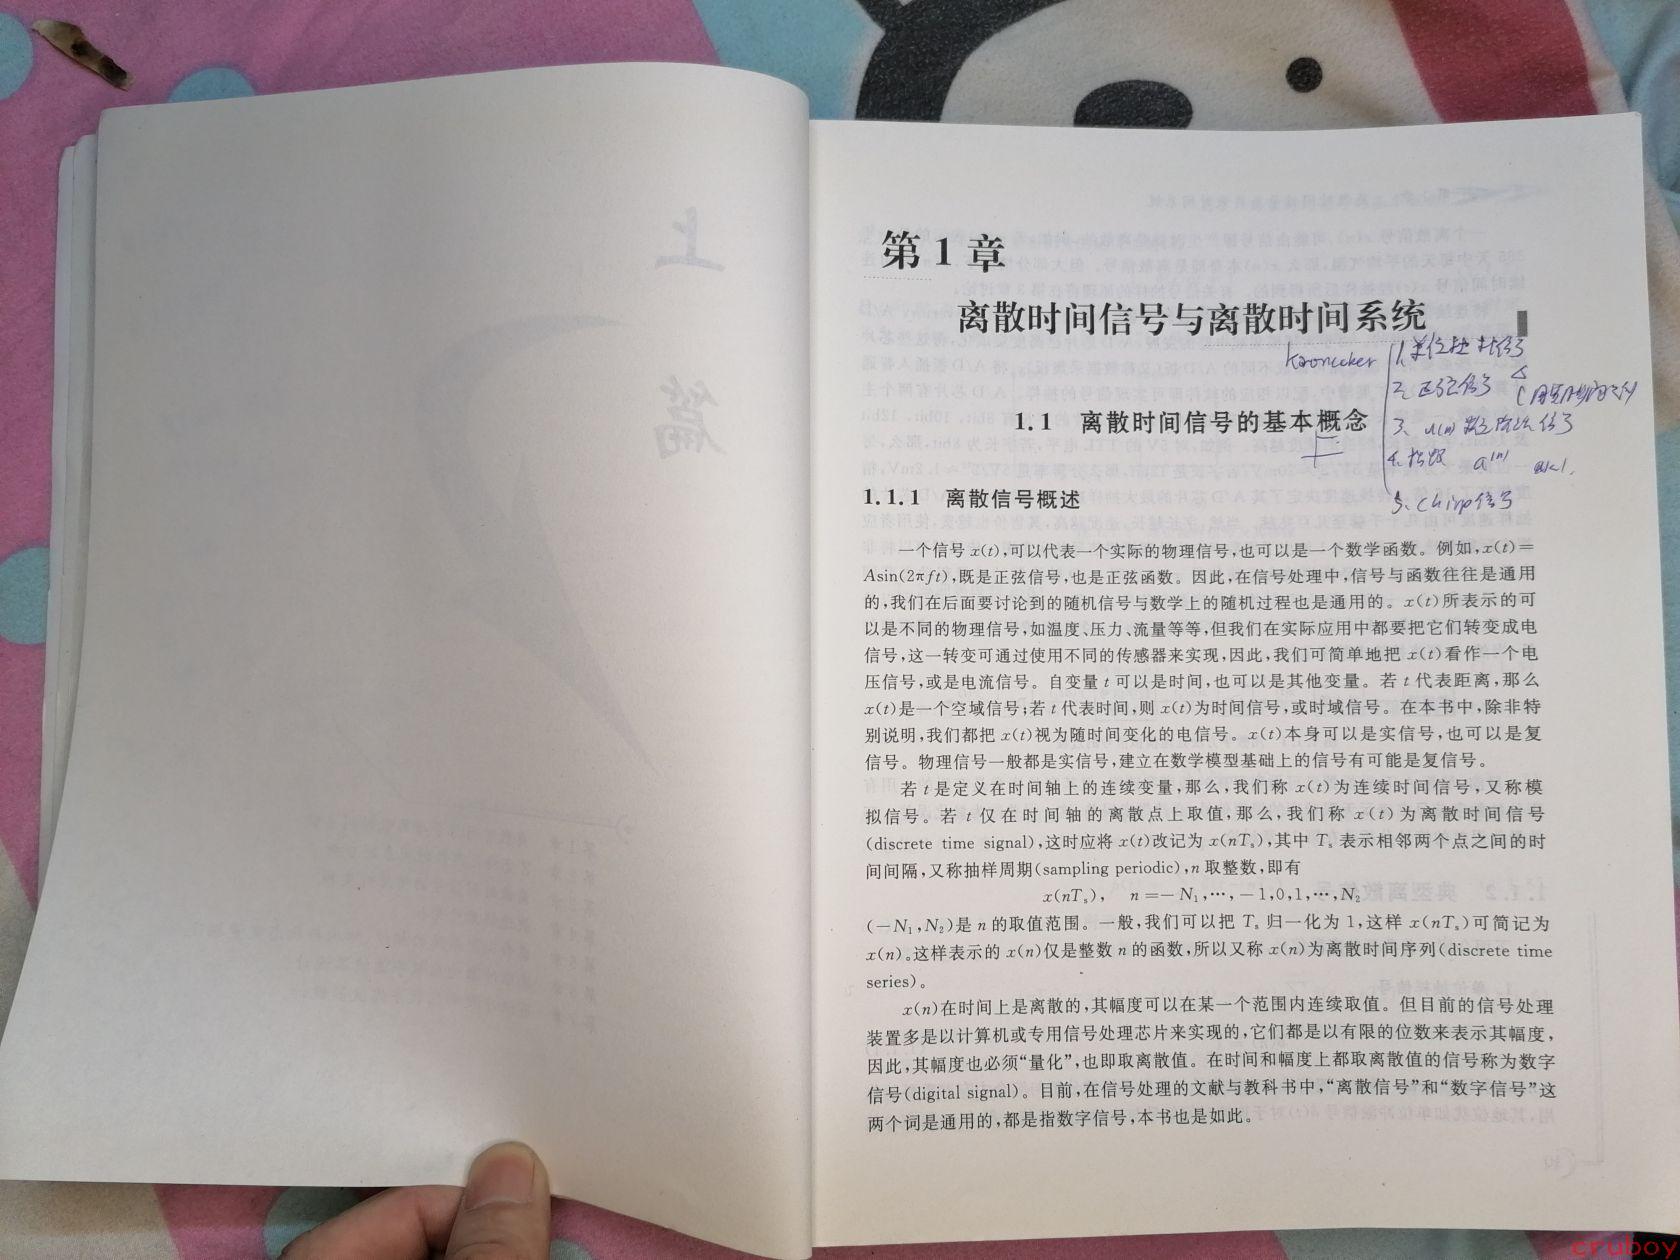 上
篇
第 1 章
离散时间信号与离散时间系统
1.1 离散时间信号的基本概念
1.1.1 离散信号概述
一个信号 x(t),可以代表一个实际的物理信号,也可以是一个数学函数。例如,x(t)=
Asin(2πft),既是正弦信号,也是正弦函数。因此,在信号处理中,信号与函数往往是通用
的,我们在后面要讨论到的随机信号与数学上的随机过程也是通用的。x(t)所表示的可
以是不同的物理信号,如温度、压力、流量等等,但我们在实际应用中都要把它们转变成电
信号,这一转变可通过使用不同的传感器来实现,因此,我们可简单地把 x(t)看作一个电
压信号,或是电流信号。自变量 t 可以是时间,也可以是其他变量。若 t 代表距离,那么
x(t)是一个空域信号;若 t 代表时间,则 x(t)为时间信号,或时域信号。在本书中,除非特
别说明,我们都把 x(t)视为随时间变化的电信号。x(t)本身可以是实信号,也可以是复
信号。物理信号一般都是实信号,建立在数学模型基础上的信号有可能是复信号。
若 t 是定义在时间轴上的连续变量,那么,我们称 x(t)为连续时间信号,又称模
拟信号。若 t 仅在时间轴的离散点上取值,那么,我们称 x(t)为离散时间信号
(discrete time signal),这时应将 x(t)改记为 x(nTₛ),其中 Tₛ 表示相邻两个点之间的时
间间隔,又称抽样周期(sampling periodic),n 取整数,即有
x(nTₛ), n=−N₁,⋯,−1,0,1,⋯,N₂
(−N₁,N₂)是 n 的取值范围。一般,我们可以把 Tₛ 归一化为 1,这样 x(nTₛ)可简记为
x(n)。这样表示的 x(n)仅是整数 n 的函数,所以又称 x(n)为离散时间序列(discrete time
series)。
x(n)在时间上是离散的,其幅度可以在某一个范围内连续取值。但目前的信号处理
装置多是以计算机或专用信号处理芯片来实现的,它们都是以有限的位数来表示其幅度,
因此,其幅度也必须“量化”,也即取离散值。在时间和幅度上都取离散值的信号称为数字
信号(digital signal)。目前,在信号处理的文献与教科书中,“离散信号”和“数字信号”这
两个词是通用的,都是指数字信号,本书也是如此。
1. 单位抽样信号
2. 正弦信号
3. u(n)
4. 指数 a|n|
5. chirp信号
cruboy